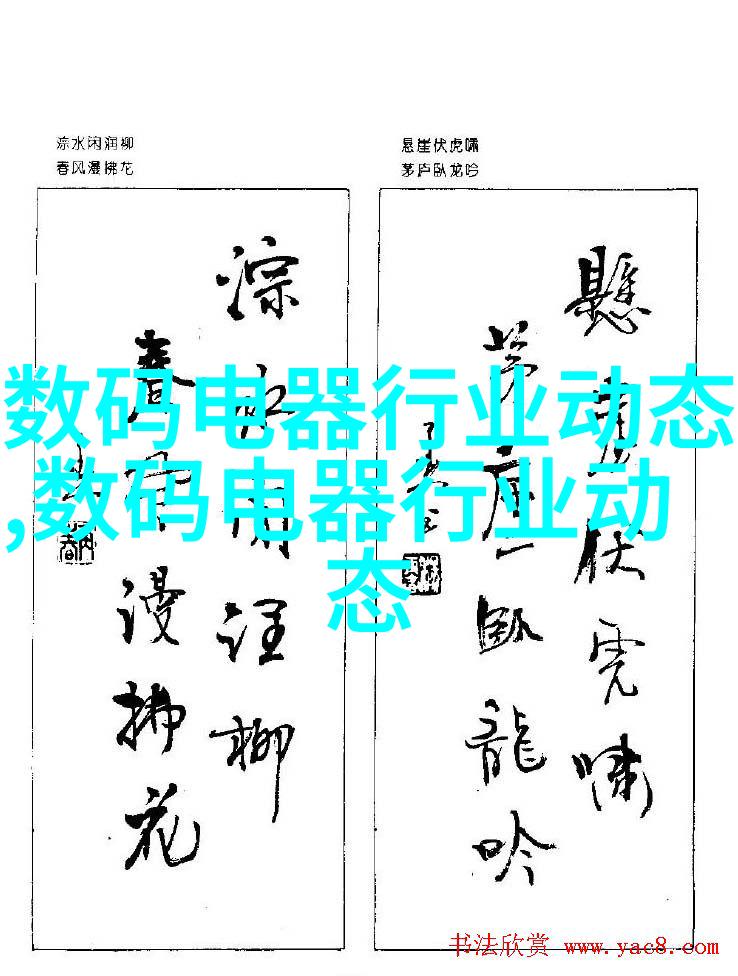 淙水闲润柳
春风漫拂花
悬崖伏虎啸
茅庐卧龙吟
淙水闲润柳
春风漫拂花
懸崖伏虎嘯
茅廬卧龍吟
数码电器行业动态
,数码电器行业动
态
书法欣赏 www.yac8.com